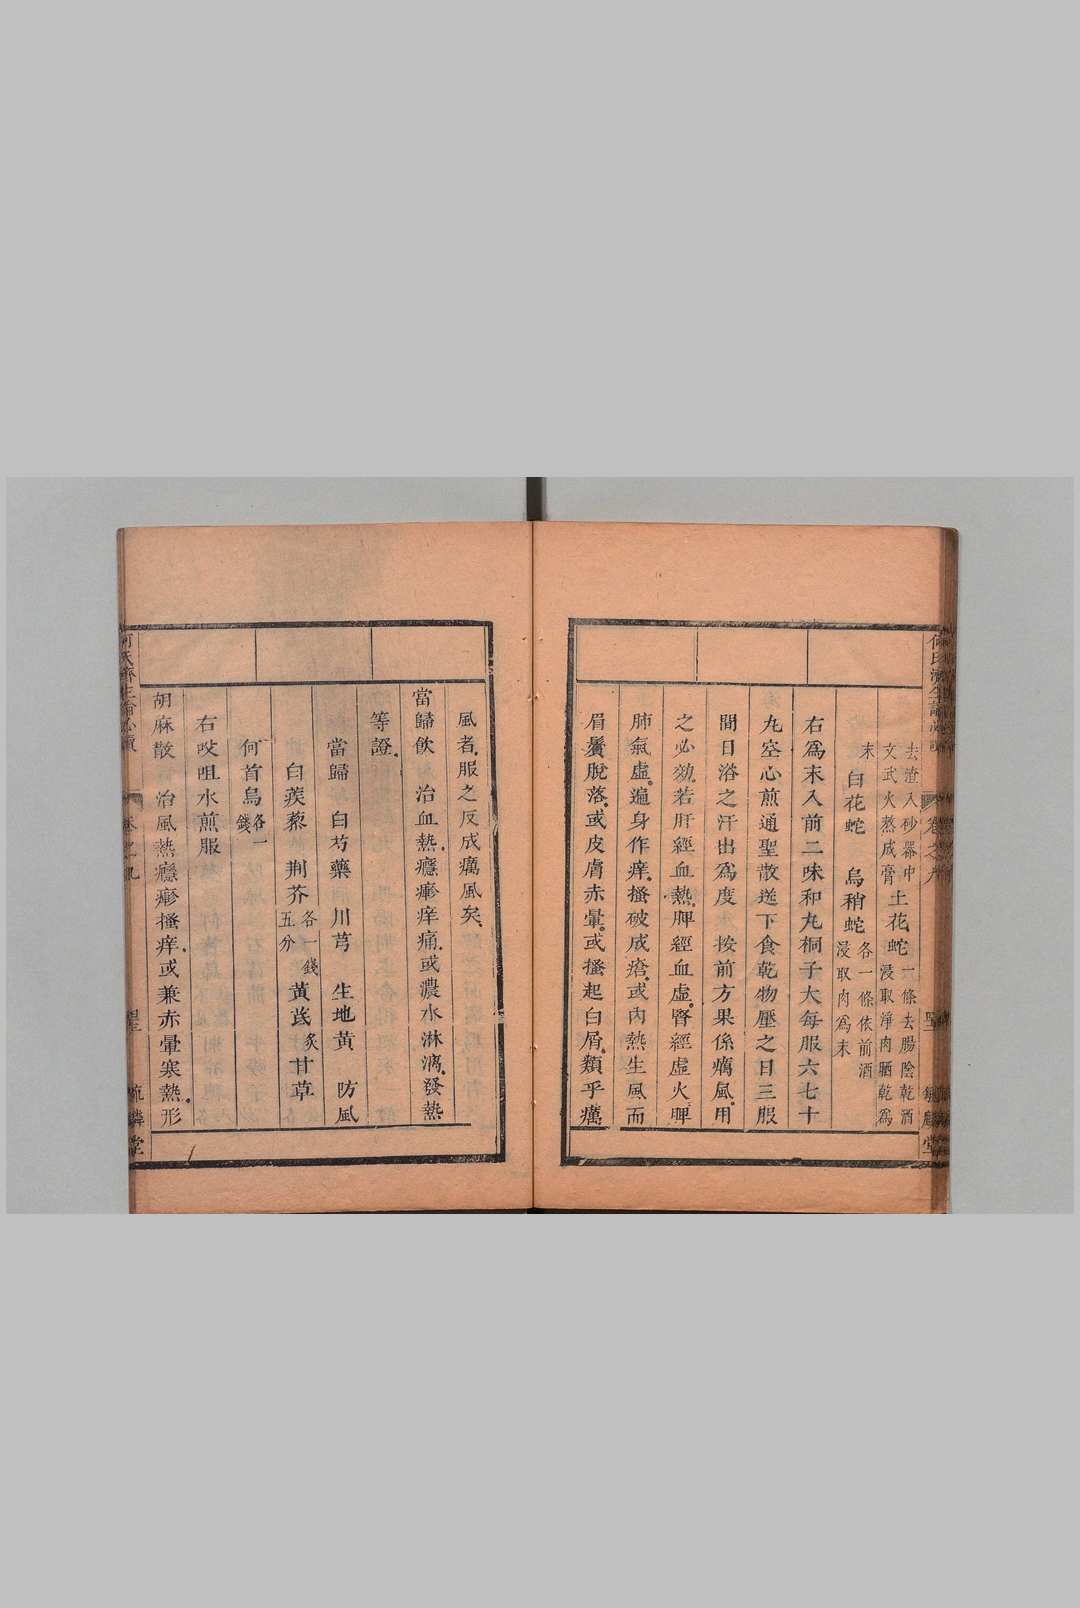 去渣入砂器中
文武火熬成膏 土花蛇 一條去腸陰乾酒
浸取淨肉晒乾爲
末 白花蛇 烏稍蛇 各一條依前酒
浸取肉爲末
右爲末入前二味和丸桐子大每服六七十
丸空心煎通聖散送下食乾物壓之日三服
間日浴之汗出爲度 按前方果係癘風用
之必効若肝經血熱脾經血虛腎經虛火脾
肺氣虛遍身作痒搔破成瘡或內熱生風而
眉鬢脫落或皮膚赤暈或搔起白屑類乎癘
風者服之反成癘風矣
當歸飲 治血熱癮疹痒痛或濃水淋漓發熱
等證
當歸 白芍藥 川芎 生地黃 防風
白蒺藜 荆芥 各一錢五分 黃芪 炙甘草
何首烏 各一錢
右㕮咀水煎服
胡麻散 治風熱癮疹搔痒或兼赤暈寒熱形
何氏濟生論必讀 卷之九